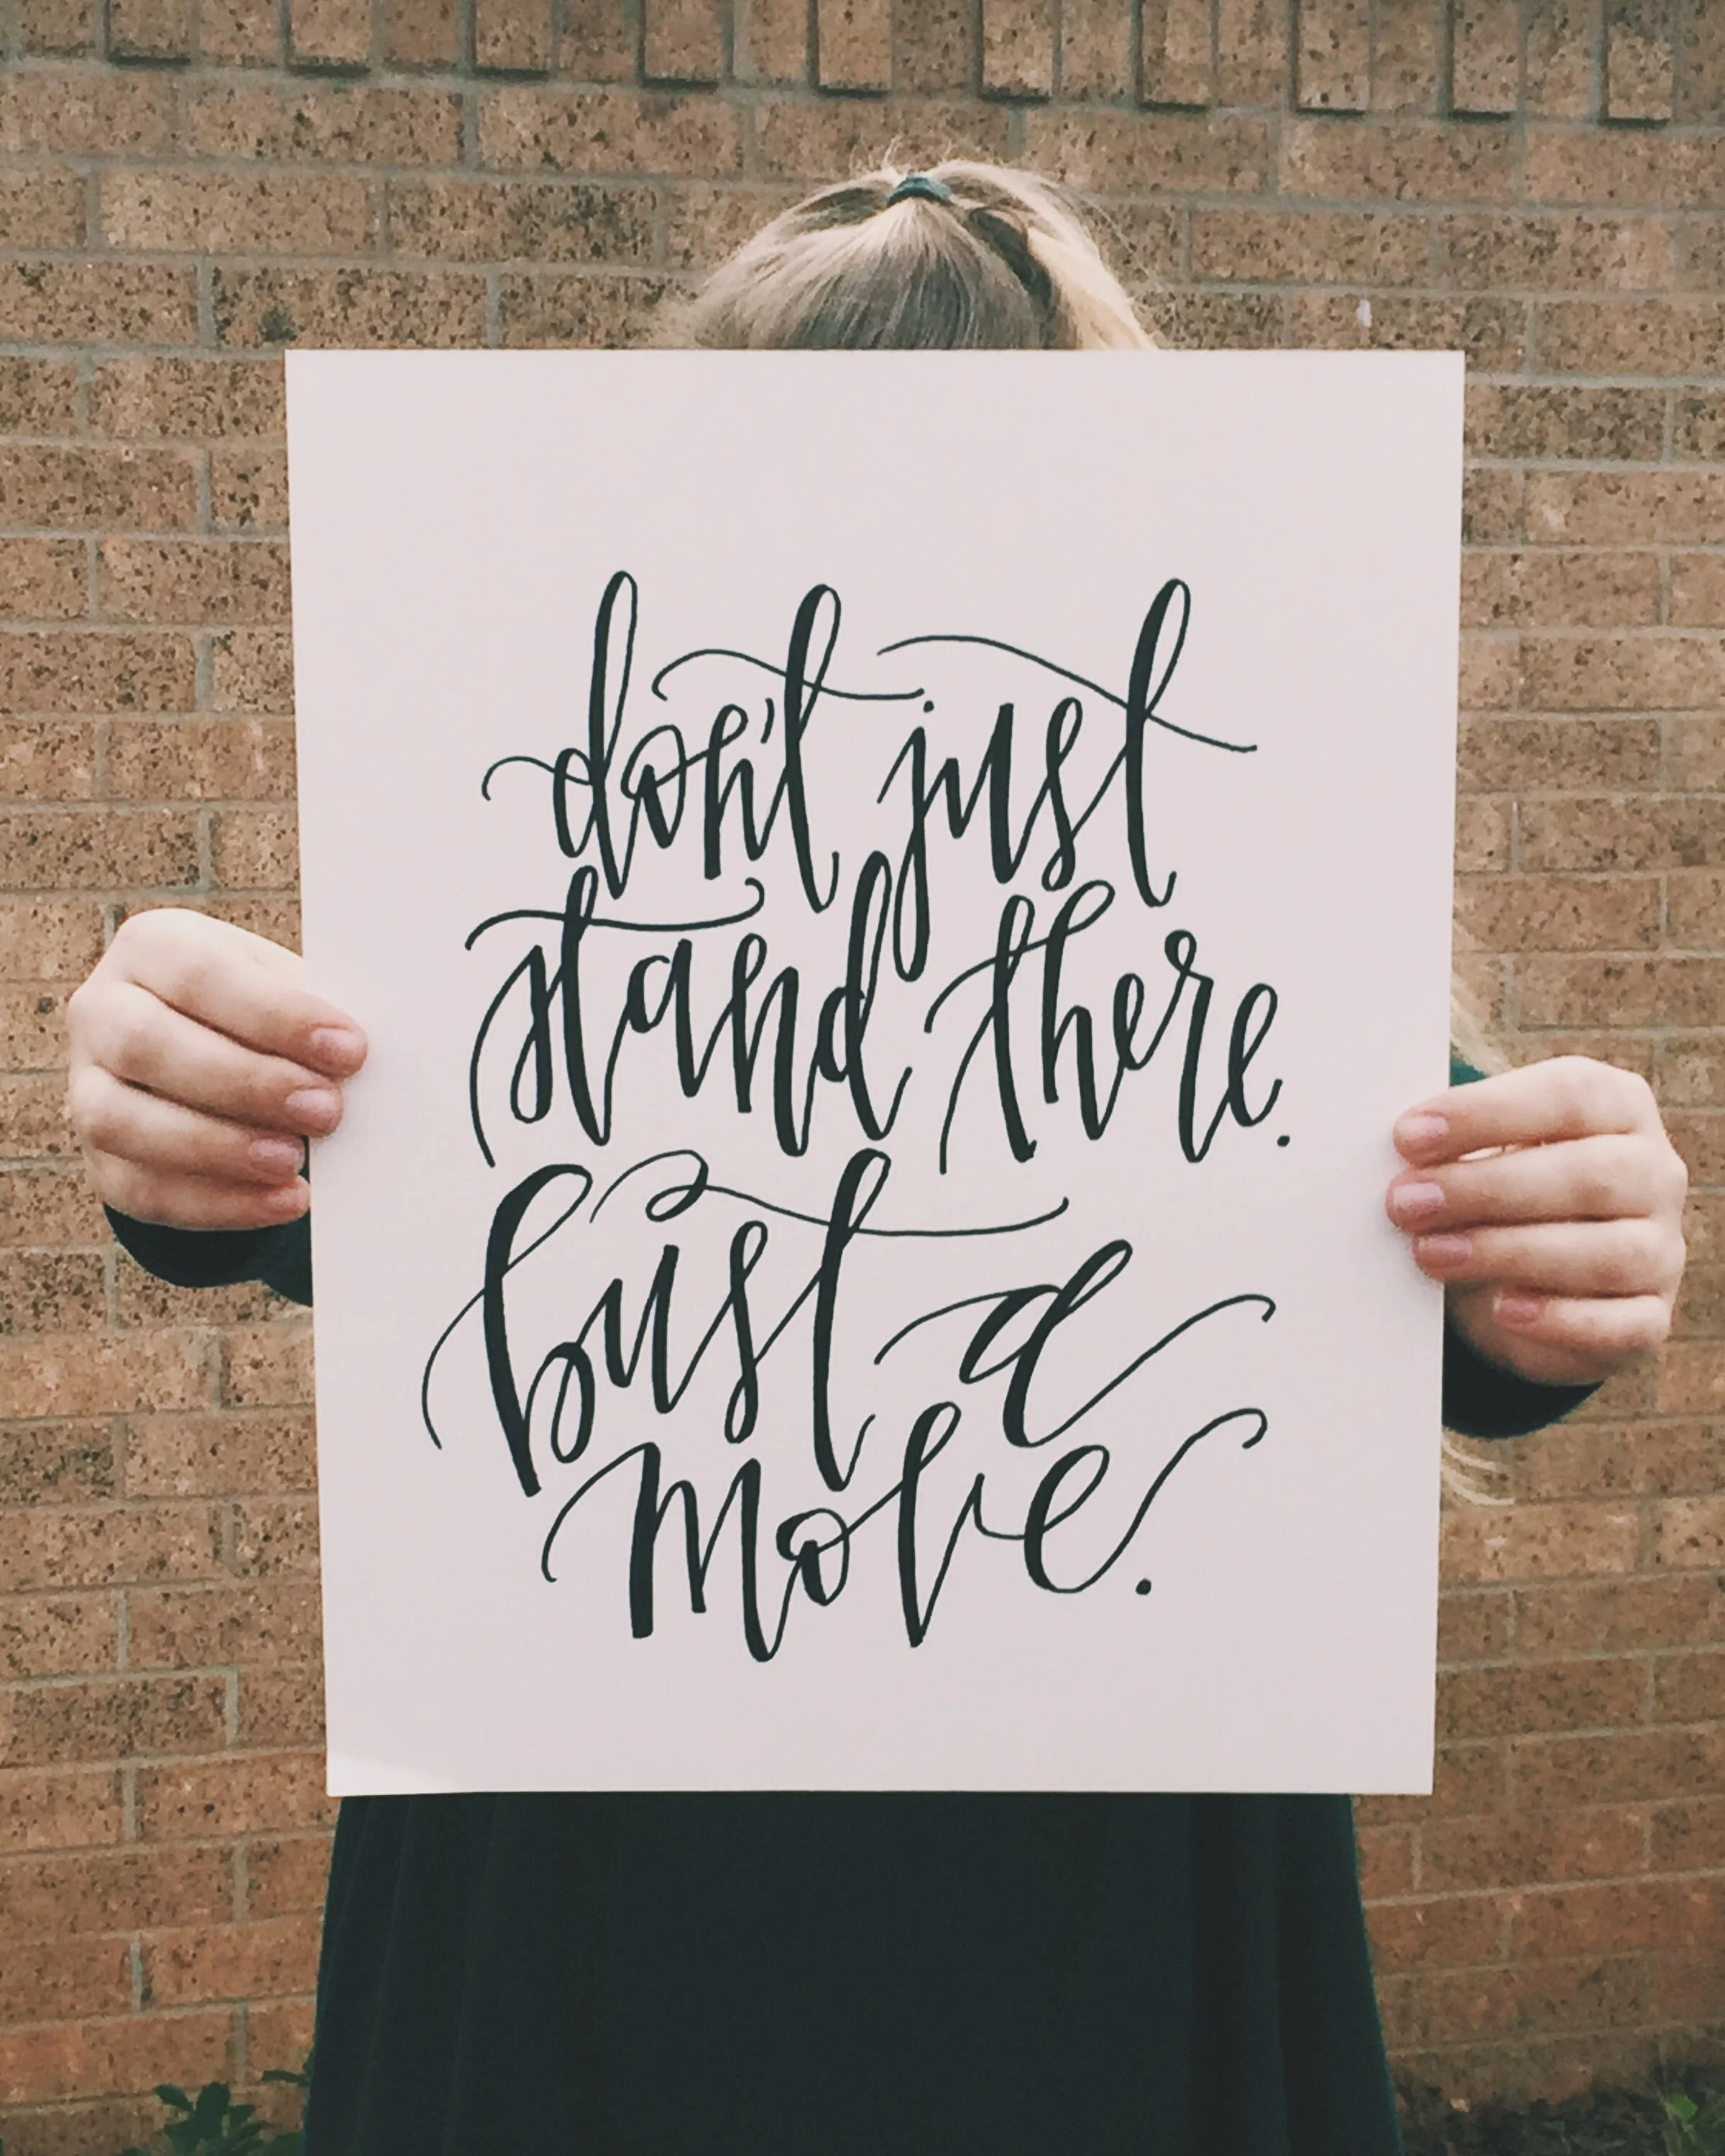 don't just
stand there.
bust a
move.